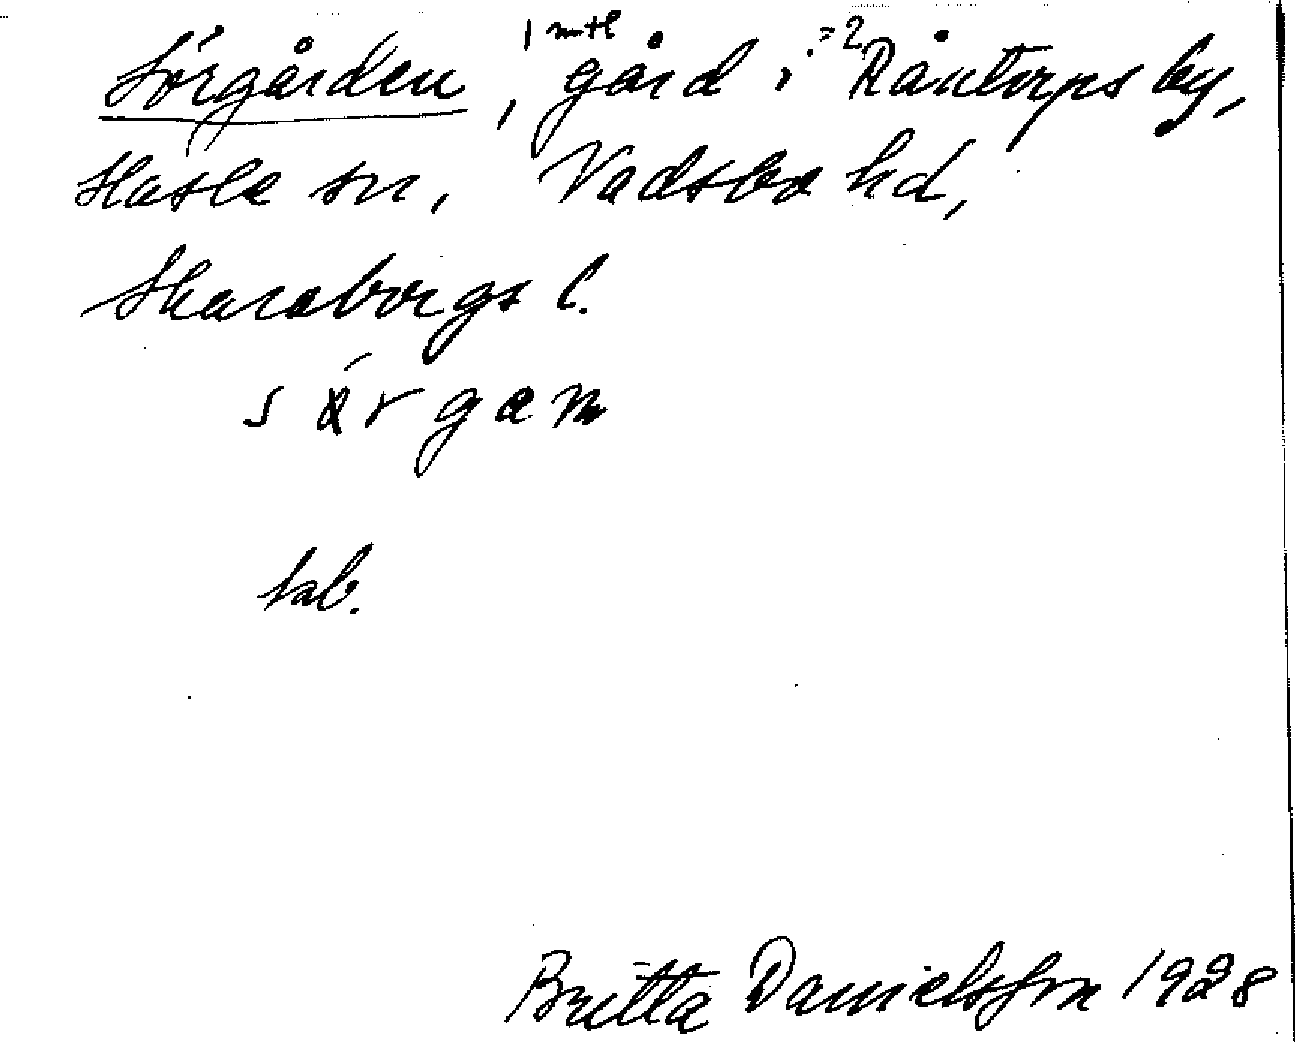 Sörgården, 1 mtl gård i =2 Råntorps by,
Hasle sn, Vadsbo hd,
Skaraborgs l.
särgæn
kab.
Britta Danielsson 1928